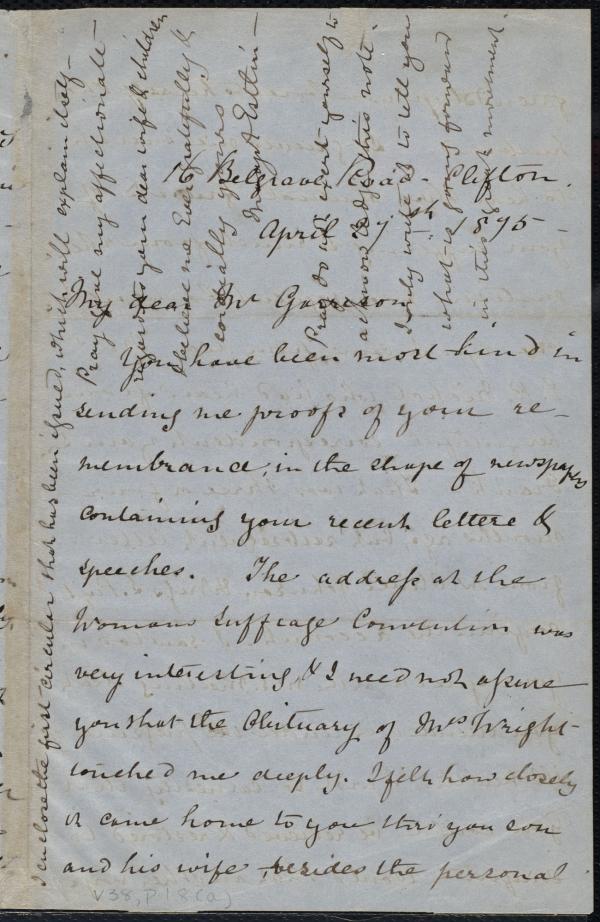 16 Belgrave Road - Clifton.
April 27th - 1875 -
My dear Mr Garrison
You have been most kind in
sending me proofs of your re-
membrance, in the shape of newspapers
containing your recent letters &
speeches. The address at the
Womans Suffrage Convention was
very interesting, & I need not assure
you that the Obituary of Mrs Wright
touched me deeply. I felt how closely
it came home to you thro' your son
and his wife, besides the personal
I enclose the first circular that has been issued, which will explain itself -
Pray give my affectionate
to your dear wife & children
& believe me Ever gratefully &
cordially yours
Mary A Estlin -
Pray do not exert yourself to
acknowledge this note.
I only write it to tell you
what is going forward
in this movement.
V38, P18(a)